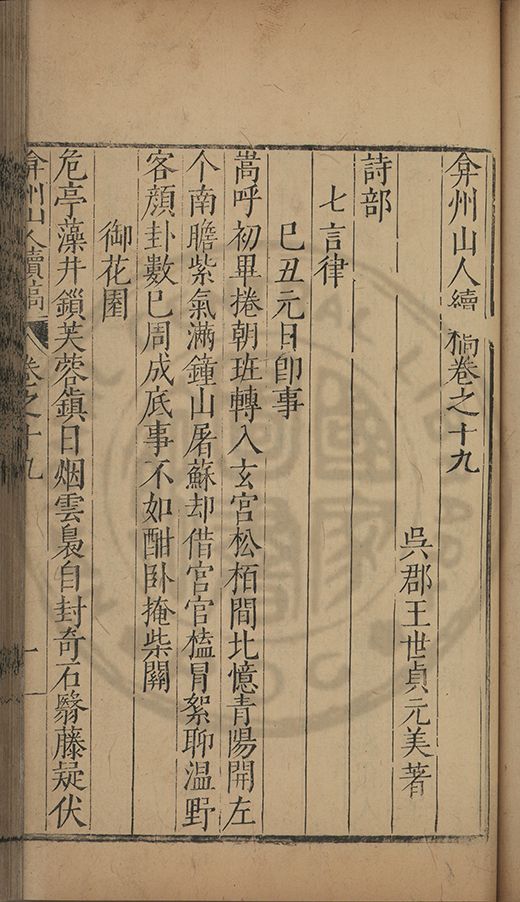 弇州山人續稿卷之十九
吳郡王世貞元美著
詩部
七言律
己丑元日即事
嵩呼初畢捲朝班轉入玄宮松栢間北憶青陽開左
个南瞻紫氣滿鐘山屠蘇却借宮官榼冒絮聊温野
客顏卦數巳周成底事不如酣臥掩柴關
御花園
危亭藻井鎖芙蓉鎮日烟雲裊自封奇石翳藤疑伏
弇州山人續稿 卷之十九 一